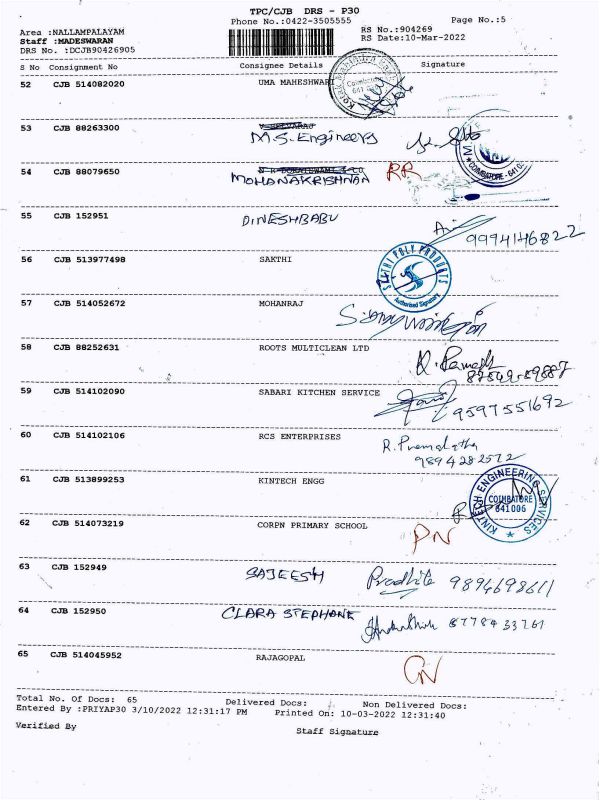 TPC/CJB DRS - P30
Phone No.:0422-3505555
Page No.:5
Area :NALLAMPALAYAM
RS No.:904269
Staff :MADESWARAN
RS Date:10-Mar-2022
DRS No. :DCJB90426905
S No Consignment No Consignee Details Signature
52 CJB 514082020 UMA MAHESHWARI
53 CJB 88263300 M.S. Engineers
54 CJB 88079650 MOHANAKRISHNAN RR
COIMBATORE - 641 0
55 CJB 152951 DINESHBABU
9994146822
56 CJB 513977498 SAKTHI
SAKTHI POLY PRODUCTS
Authorised Signatory
57 CJB 514052672 MOHANRAJ
58 CJB 88252631 ROOTS MULTICLEAN LTD
R. Ramesh
59 CJB 514102090 SABARI KITCHEN SERVICE
9597551692
60 CJB 514102106 RCS ENTERPRISES
R. Premalatha
9894282572
61 CJB 513899253 KINTECH ENGG
KINTECH ENGINEERING SERVICES
COIMBATORE
641006
62 CJB 514073219 CORPN PRIMARY SCHOOL
PN
63 CJB 152949 SAJEESH 9894698611
64 CJB 152950 CLARA STEPHANE 8778433761
65 CJB 514045952 RAJAGOPAL
Total No. Of Docs: 65 Delivered Docs: Non Delivered Docs:
Entered By :PRIYAP30 3/10/2022 12:31:17 PM Printed On: 10-03-2022 12:31:40
Verified By
Staff Signature